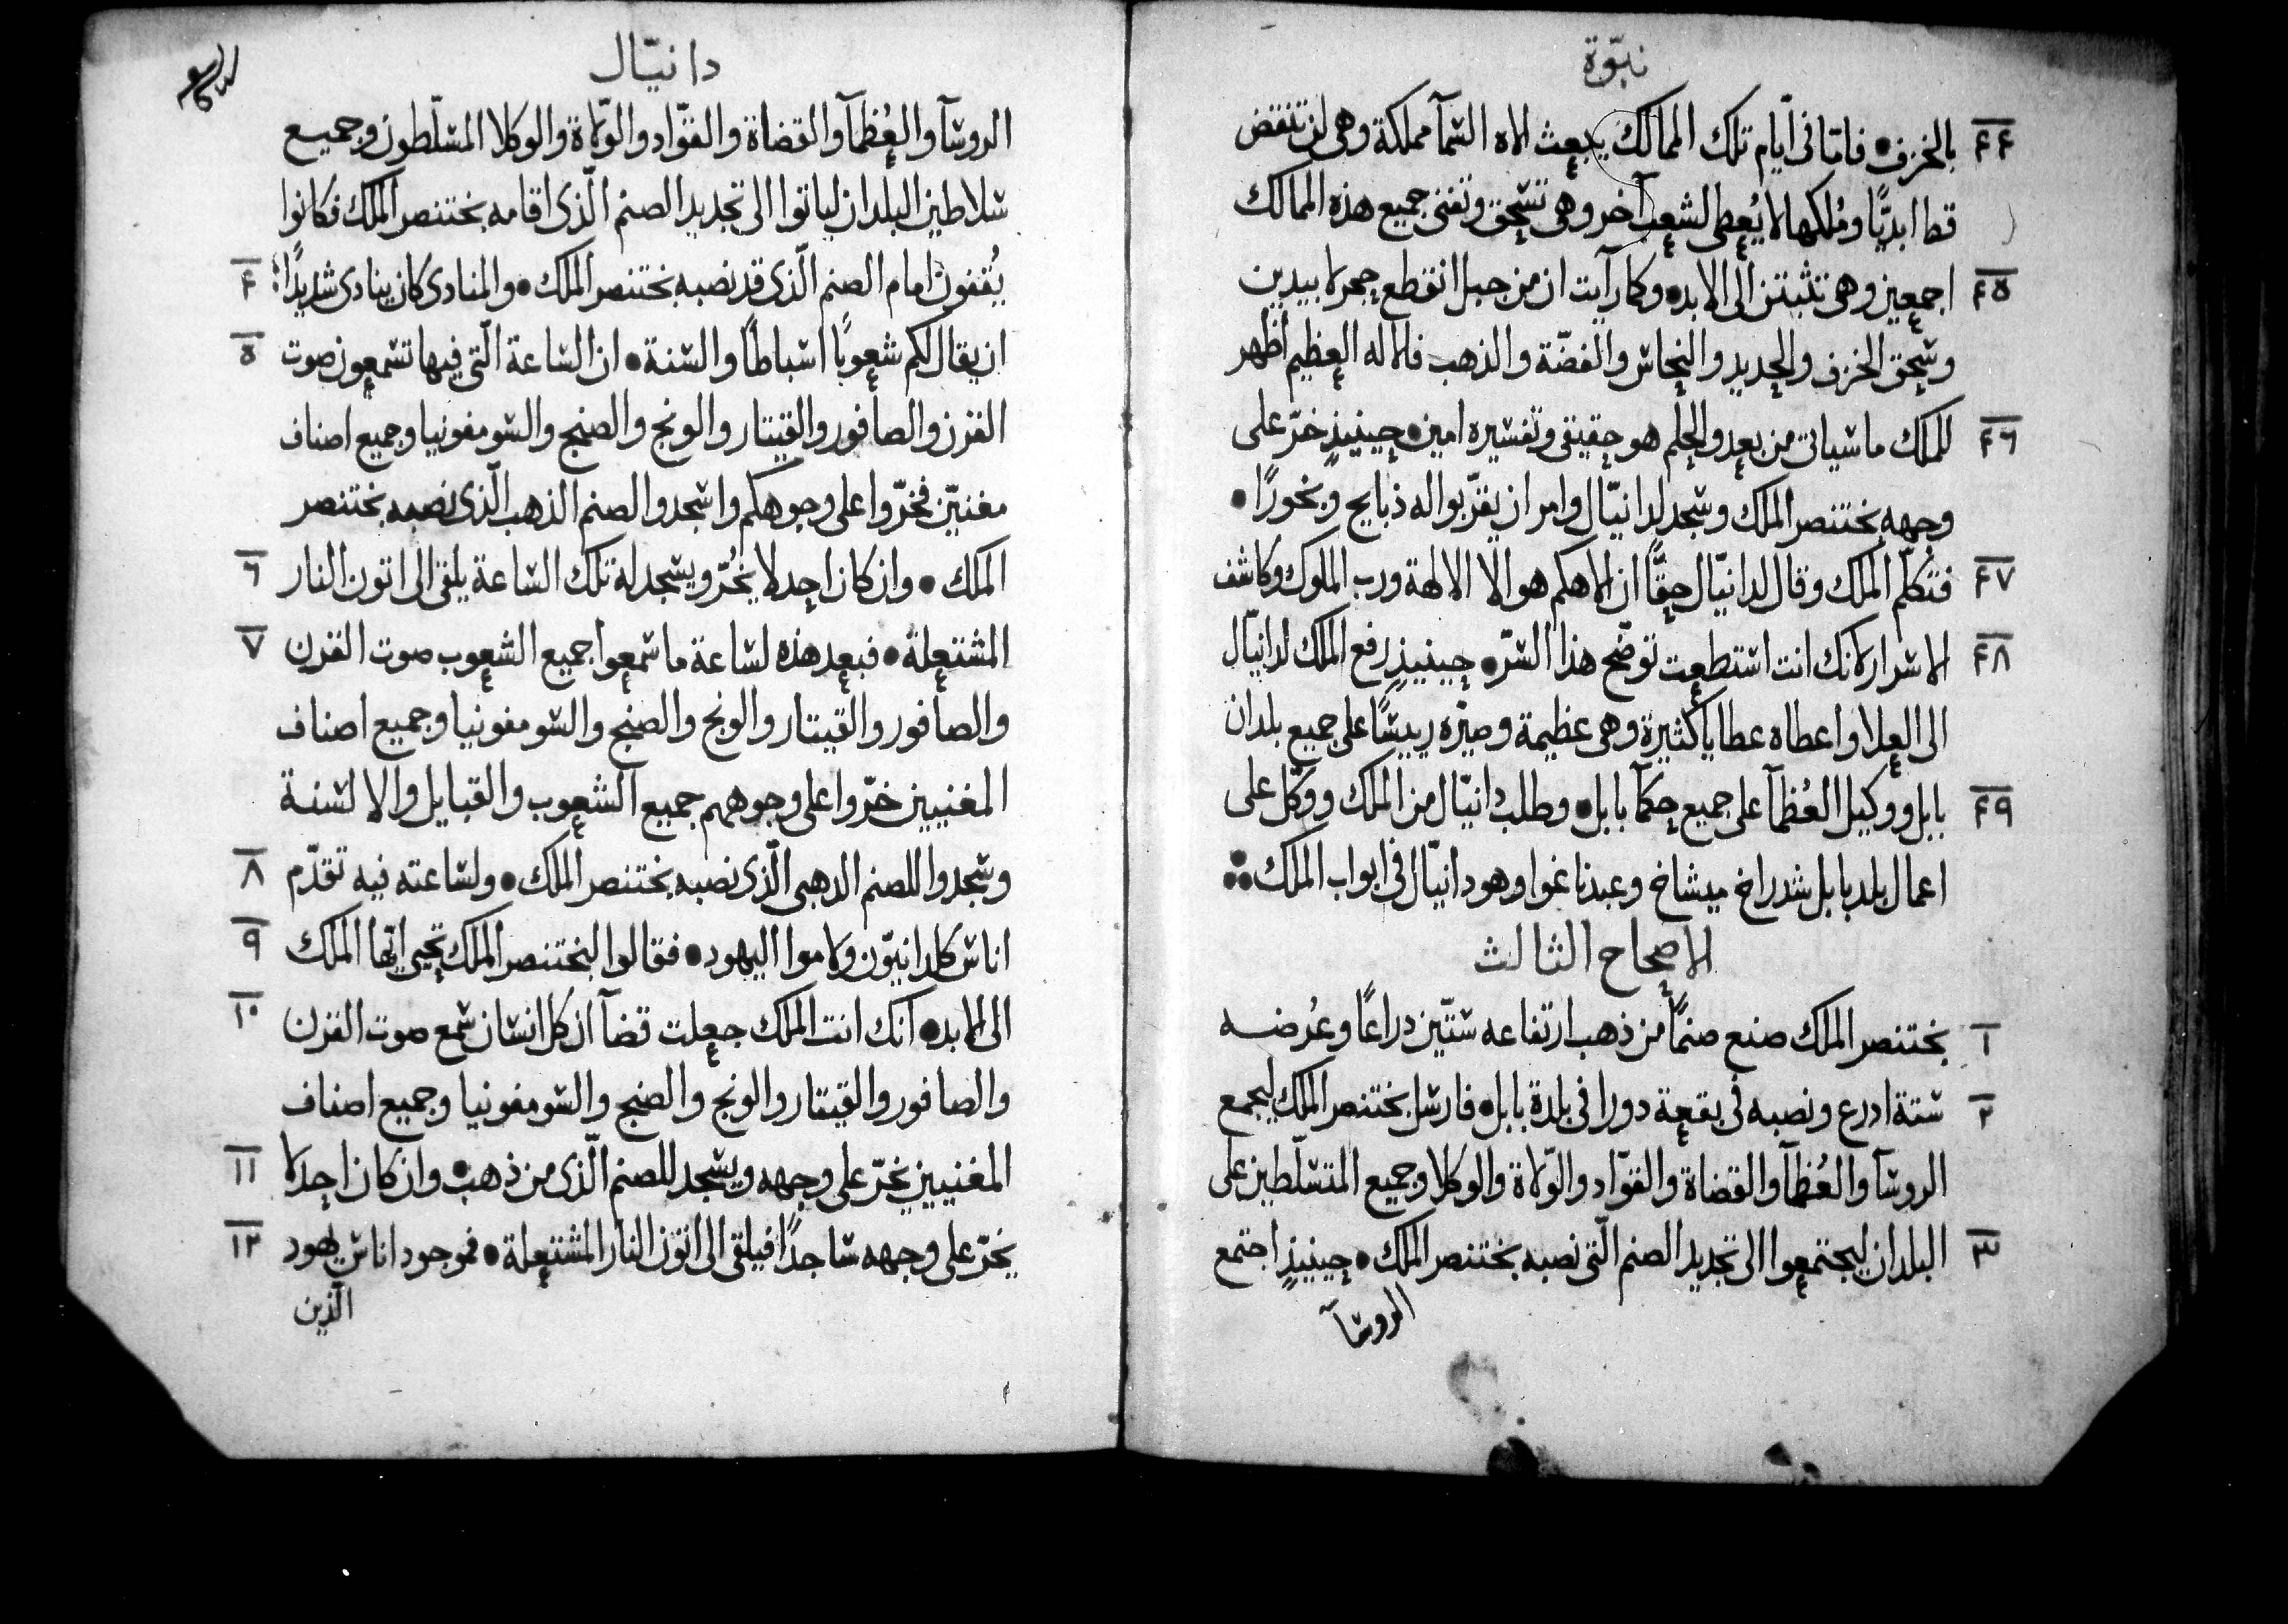 نبوّة
٤٤ بالخزف • فامّا فى ايّام تلك الممالك يبعث الاه السّمآ مملكة وهى لن تنقض
قط ابديًّا ومُلكها لا يُعطى لشعب آخر وهى تسحق وتفنى جميع هذه الممالك
٤٥ اجمعين وهى تثبتن الى الابد • وكما رآيت ان من جبل انقطع حجر لا بيدين
وسحق الخزف والحديد والنحاس والفضّة والذهب فالاله العظيم اظهر
٤٦ للملك ما سياتى من بعد والحلم هو حقيقى وتفسيره امين • حينيذٍ خرّ على
وجهه بختنصر الملك وسجد لدانيّال وامر ان يقرّبوا له ذبايح وبخورًا •
٤٧ فتكلّم الملك وقال لدانيّال حقًّا ان الاهكم هو الاه الالهة ورب الملوك وكاشف
٤٨ الاسرار لانك انت استطعت توضّح هذا السّر • حينيذٍ رفع الملك لدانيّال
الى العلا واعطاه عطايا كثيرة وهى عظيمة وصيّره رييسًا على جميع بلدان
٤٩ بابل ووكيل العُظمآ على جميع حكمآ بابل • وطلب دانيّال من الملك ووكّل على
اعمال بلد بابل شدراخ ميشاخ وعبدناغوا وهو دانيّال فى ابواب الملك
الاصحاح الثالث
١ بختنصر الملك صنع صنمًا من ذهب ارتفاعه ستّين دراعًا وعُرضه
٢ ستة ادرع ونصبه فى بقعة دورا فى بلدة بابل • فارسل بختنصر الملك ليجمع
الروسآ والعُظمآ والقضاة والقوّاد والوّلاة والوكلا وجميع المتسلّطين على
٣ البلدان ليجتمعوا الى تجديد الصنم الّتى نصبه بختنصر الملك • حينيذٍ اجتمع
الروسآ
دانيّال
الروسآ والعُظمآ والقضاة والقوّاد والوّلاة والوكلا المسلّطون وجميع
سلاطين البلدان لياتوا الى تجديد الصنم الّذى اقامه بختنصر الملك فكانوا
٤ يُقفون امام الصنم الّذى قد نصبه بختنصر الملك • والمنادى كان ينادى شديدًا
٥ ان يقال لكم شعوبًا اسباطًا والسنة • ان السّاعة الّتى فيها تسمعون صوت
القرن والصافور والقيتار والونج والصنج والسّومفونيا وجميع اصناف
مغنيّن فخرّوا على وجوهكم واسجدوا لصنم الذهب الّذى نصبه بختنصر
٦ الملك • وان كان احد لا يخُرّ ويسجد له تلك السّاعة يلقى الى اتون النار
٧ المشتعلة • فبعد هذه لسّاعة ما سمعوا جميع الشعوب صوت القرن
والصافور والقيتار والونج والصنج والسّومفونيا وجميع اصناف
المغنيين خرّوا على وجوههم جميع الشعوب والقبايل والالسنة
٨ وسجدوا للصنم الدهبى الّذى نصبه بختنصر الملك • ولساعته فيه تقدّم
٩ اناس كلدانيّون ولاموا اليهود • فقالوا لبختنصر الملك تحيى ايّها الملك
١٠ الى الابد • انك انت الملك جعلت قضآ ان كل انسان سمع صوت القرن
والصافور والقيتار والونج والصنج والسّومفونيا وجميع اصناف
١١ المغنيين يخرّ على وجهه ويسجد للصنم الّذى من ذهب • وان كان احد لا
١٢ يخرّ على وجهه ساجدًا فيلقى الى اتون النار المشتعلة • فموجود اناس يهود
الّذين